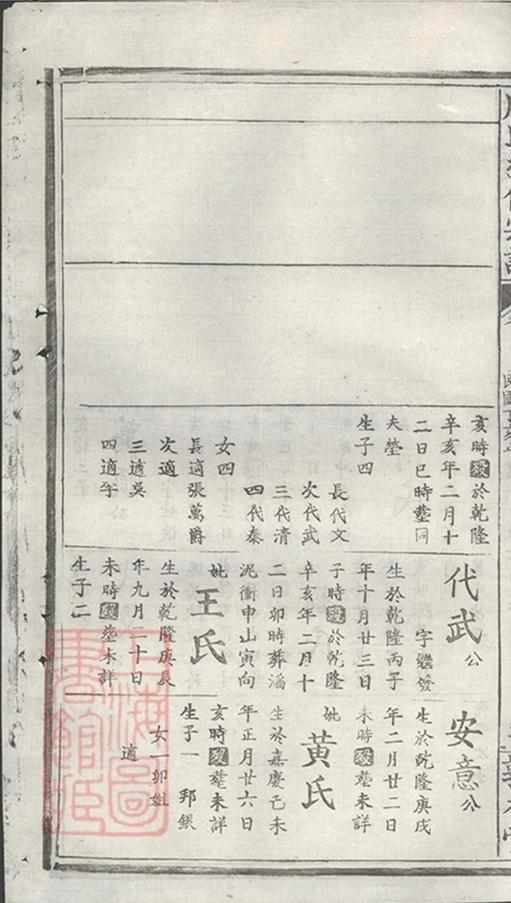 亥時歿於乾隆
辛亥年二月十
二日巳時塟同
夫塋
生子四
長代文
次代武
三代清
四代秦
女四
長適張萬爵
次適
三適吳
四適李
代武公
字繼發
生於乾隆丙子
年十月廿三日
子時歿於乾隆
辛亥年二月十
二日卯時葬滔
泥衝申山寅向
妣王氏
生於乾隆庚辰
年九月二十日
未時歿塟未詳
生子二
安意公
生於乾隆庚戌
年二月廿二日
未時歿塟未詳
妣黃氏
生於嘉慶己未
年正月廿六日
亥時歿塟未詳
生子一 邦銀
女一卯姐
適